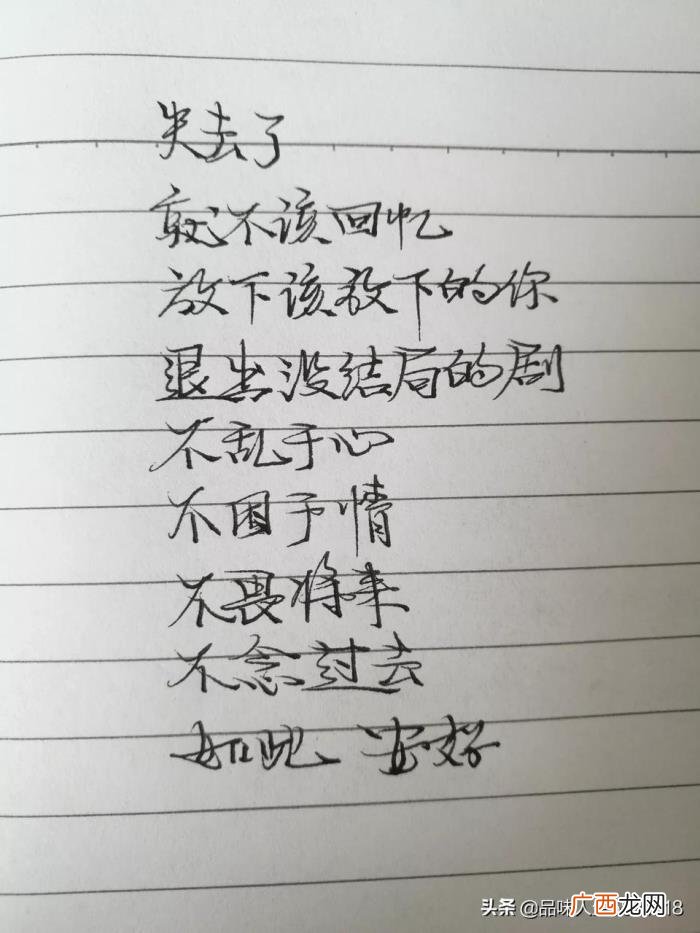 失去了
就不该回忆
放下该放下的你
退出没结局的剧
不乱于心
不困于情
不畏将来
不念过去
如此 安好
头条 @品味人
广西龙网
18